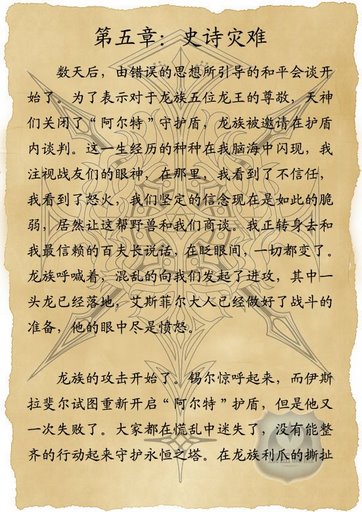 第五章：史诗灾难
数天后，由错误的思想所引导的和平会谈开
始了。为了表示对于龙族五位龙王的尊敬，天神
们关闭了“阿尔特”守护盾，龙族被邀请在护盾
内谈判。这一生经历的种种在我脑海中闪现，我
注视战友们的眼神，在那里，我看到了不信任，
我看到了怒火，我们坚定的信念现在是如此的脆
弱，居然让这帮野兽和我们商谈。我正转身去和
我最信赖的百夫长说话，在眨眼间，一切都变了。
龙族呼喊着，混乱的向我们发起了进攻，其中一
头龙已经落地，艾斯菲尔大人已经做好了战斗的
准备，他的眼中尽是愤怒。
龙族的攻击开始了。锡尔惊呼起来，而伊斯
拉斐尔试图重新开启“阿尔特”护盾，但是他又
一次失败了。大家都在慌乱中迷失了，没有能整
齐的行动起来守护永恒之塔。在龙族利爪的撕扯